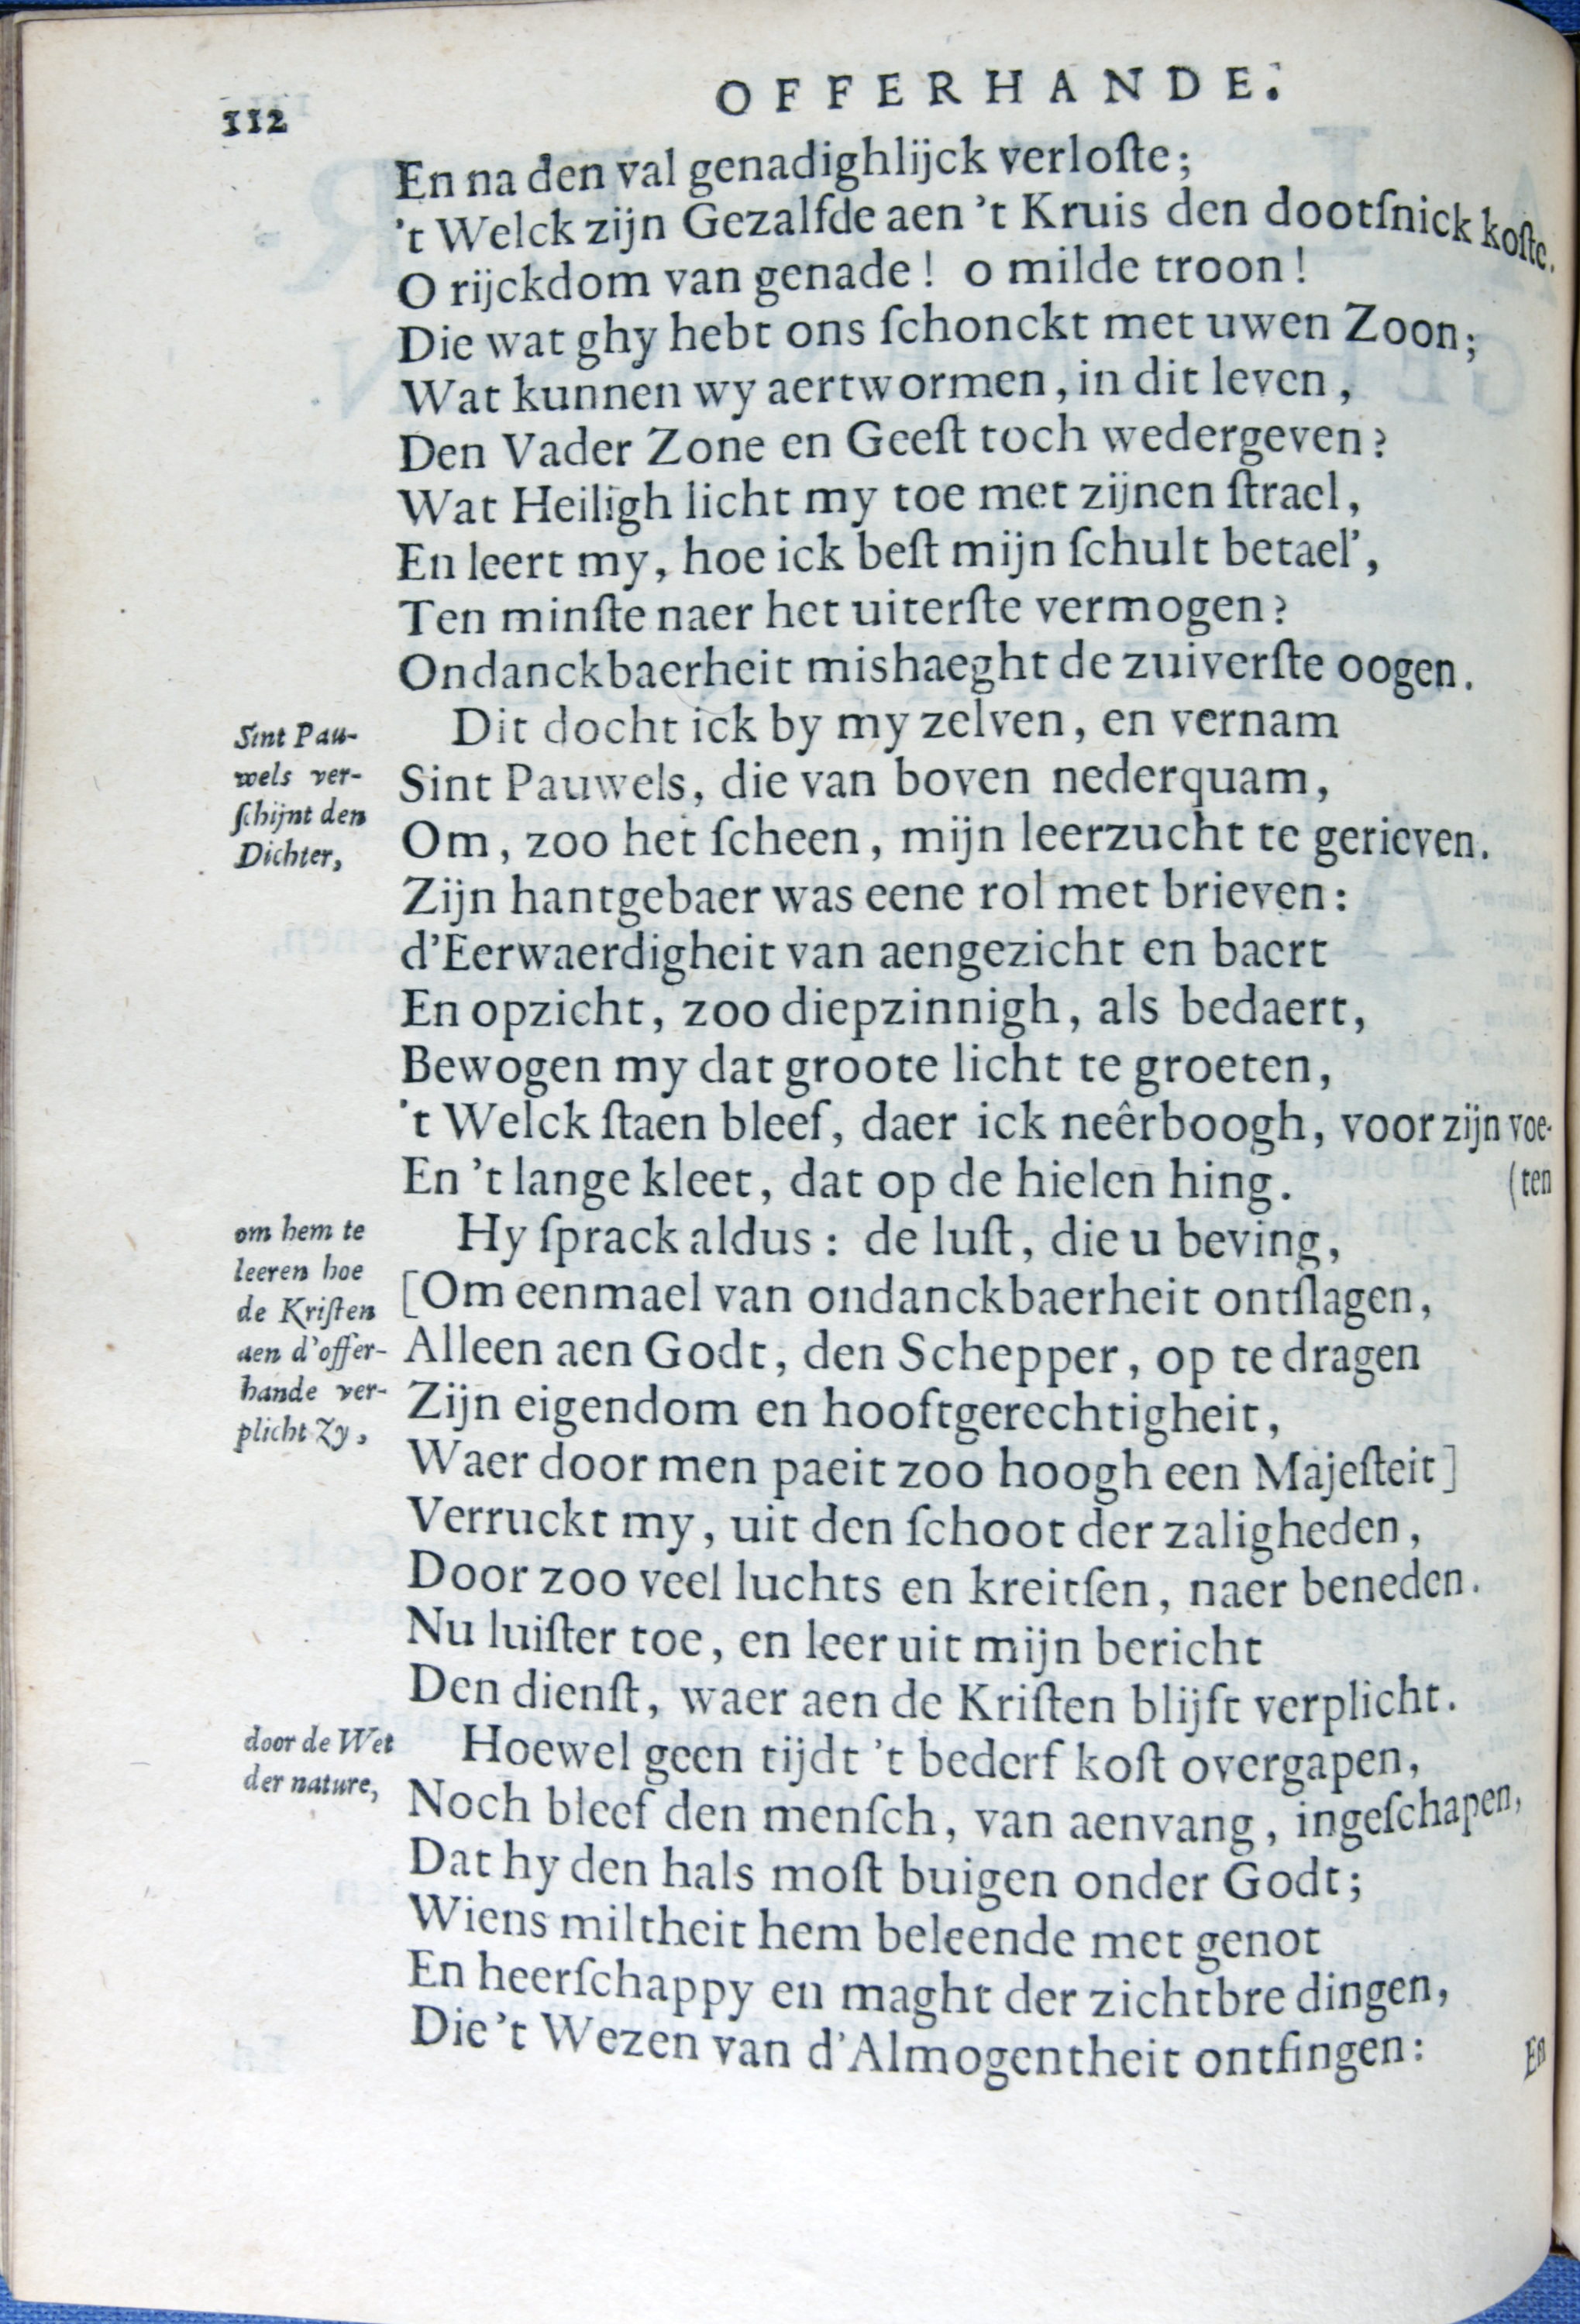 112
OFFERHANDE.
En na den val genadighlijck verloſte;
't Welck zijn Gezalfde aen 't Kruis den dootſnick koſte.
O rijckdom van genade! o milde troon!
Die wat ghy hebt ons ſchonckt met uwen Zoon;
Wat kunnen wy aertwormen, in dit leven,
Den Vader Zone en Geeſt toch wedergeven?
Wat Heiligh licht my toe met zijnen ſtrael,
En leert my, hoe ick beſt mijn ſchult betael',
Ten minſte naer het uiterſte vermogen?
Ondanckbaerheit mishaeght de zuiverſte oogen.
Sint Pau-
wels ver-
ſchijnt den
Dichter,
Dit docht ick by my zelven, en vernam
Sint Pauwels, die van boven nederquam,
Om, zoo het ſcheen, mijn leerzucht te gerieven.
Zijn hantgebaer was eene rol met brieven:
d'Eerwaerdigheit van aengezicht en baert
En opzicht, zoo diepzinnigh, als bedaert,
Bewogen my dat groote licht te groeten,
't Welck ſtaen bleef, daer ick neêrboogh, voor zijn voe-
(ten
En 't lange kleet, dat op de hielen hing.
om hem te
leeren hoe
de Kriſten
aen d'offer-
hande ver-
plicht Zy,
Hy ſprack aldus: de luſt, die u beving,
[Om eenmael van ondanckbaerheit ontſlagen,
Alleen aen Godt, den Schepper, op te dragen
Zijn eigendom en hooftgerechtigheit,
Waer door men paeit zoo hoogh een Majeſteit]
Verruckt my, uit den ſchoot der zaligheden,
Door zoo veel luchts en kreitſen, naer beneden.
Nu luiſter toe, en leer uit mijn bericht
Den dienſt, waer aen de Kriſten blijft verplicht.
door de Wet
der nature,
Hoewel geen tijdt 't bederf koſt overgapen,
Noch bleef den menſch, van aenvang, ingeſchapen,
Dat hy den hals moſt buigen onder Godt;
Wiens miltheit hem beleende met genot
En heerſchappy en maght der zichtbre dingen,
Die 't Wezen van d'Almogentheit ontfingen:
En